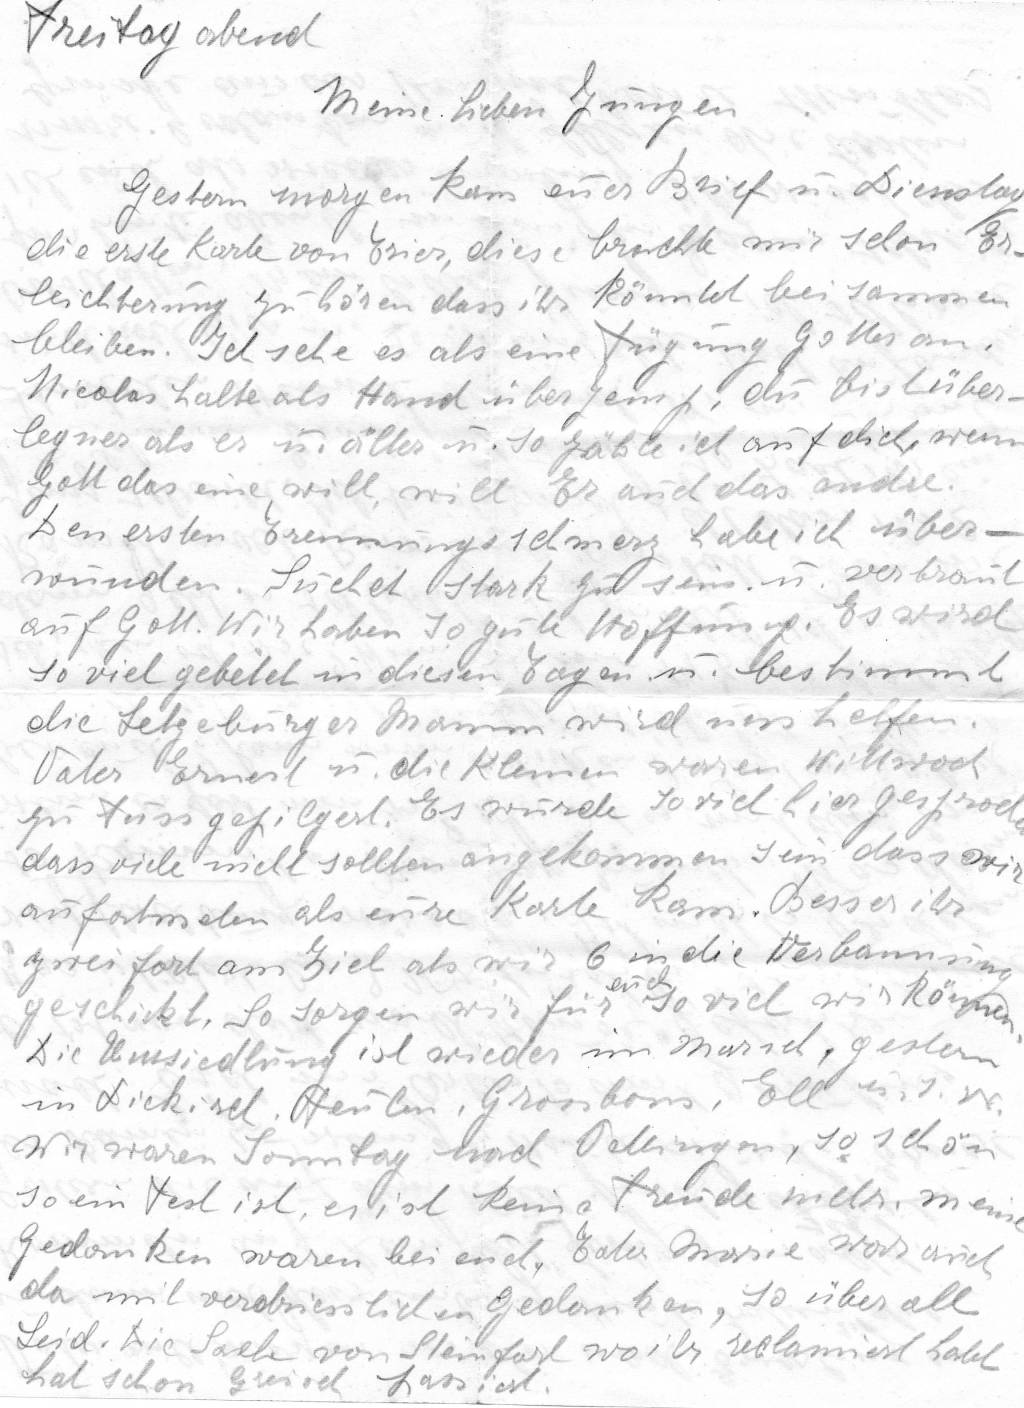 Freitag abend
Meine lieben Jungen
Gestern morgen kam euer Brief u. Dienstag
die erste Karte von Trier, diese brachte mir schon Er-
leichterung zu hören dass ihr könntet beisammen
bleiben. Ich sehe es als eine Fügung Gottes an.
Nicolas halte als Hand über Jemp, du bist über-
legner als er u. älter u. so zähle ich auf dich, wenn
Gott das eine will, will Er auch das andre.
Den ersten Trennungsschmerz habe ich über-
wunden. Suchet stark zu sein u. vertraut
auf Gott. Wir haben so gute Hoffnung. Es wird
so viel gebetet in diesen Tagen u. bestimmt
die Letzeburger Mamm wird uns helfen.
Vater Ernest u. die Kleinen waren Mittwoch
zu Fuss gepilgert. Es wurde so viel hier gesproch
dass viele nicht sollten angekommen sein dass wir
aufatmeten als eure Karte kam. Besser ihr
zwei fort am Ziel als wir 6 in die Verbannung
geschickt. So sorgen wir für euch so viel wir können.
Die Umsiedlung ist wieder im Marsch, gestern
in Dickirch, Grosbous, Ell u. s. w.
Wir waren Sonntag nach so schön
so ein Fest ist, es ist keine Freude mehr, meine
Gedanken waren bei euch, Marie war auch
da mit verdriesslichen Gedanken, so überall
Leid. Die Sache von Steinfort wo ihr reclamiert habt
hat schon Greisch passiert.